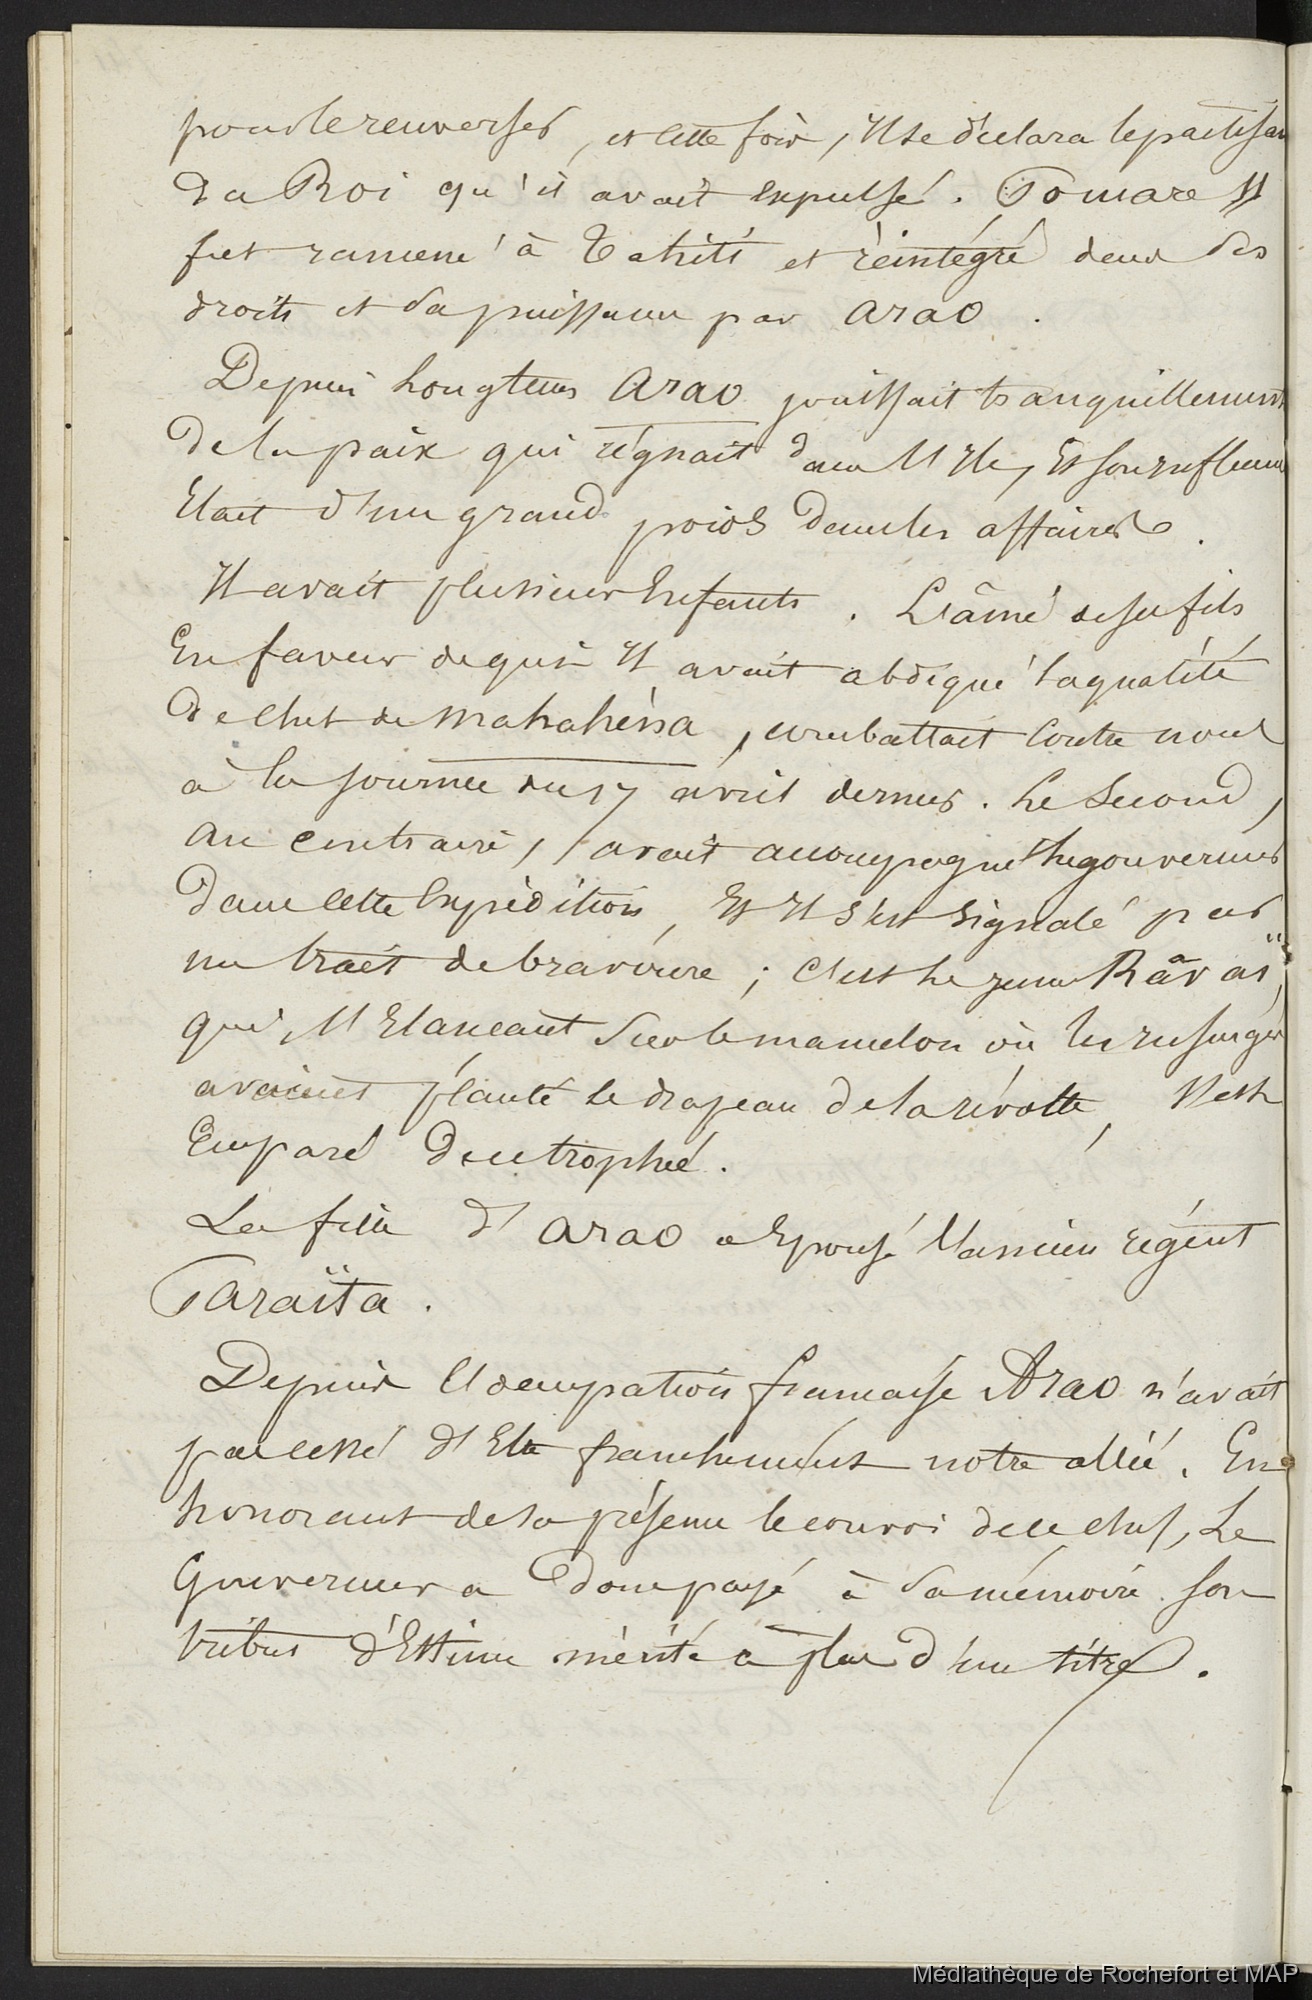 pour le renverser, et cette fois, Il se déclara le partisan
du Roi qu'il avait expulsé. Pomare II
fut ramené à Tahiti et réintégré dans ses
droits et sa puissance par Arao.
Depuis longtems Arao jouissait tranquillement
de la paix qui régnait dans l'Ile, Et son influence
Etait d'un grand poids dans les affaires.
Il avait plusieurs Enfants. L'aîné de ses fils
En faveur de qui Il avait abdiqué la qualité
de chef de Mahahéna, combattait contre nous
à la journée du 17 avril dernier. Le Second,
au contraire, avait accompagné le gouverneur
dans cette Expédition, Et Il s'est signalé par
un trait de bravoure ; C'est le jeune Râvaï,
qui, s'Elancant sur le mamelon où les insurgés
avaient planté le drapeau de la révolte, s'est
Emparé de ce trophée.
La fille d'Arao a Epousé l'ancien régent
Paraïta.
Depuis l'occupation française Arao n'avait
pas cessé d'Etre franchement notre allié. En
honorant de sa présence le convoi de ce chef, Le
Gouverneur a donc payé à sa mémoire son
tribut d'Estime mérité à plus d'un titre.
Médiathèque de Rochefort et MAP